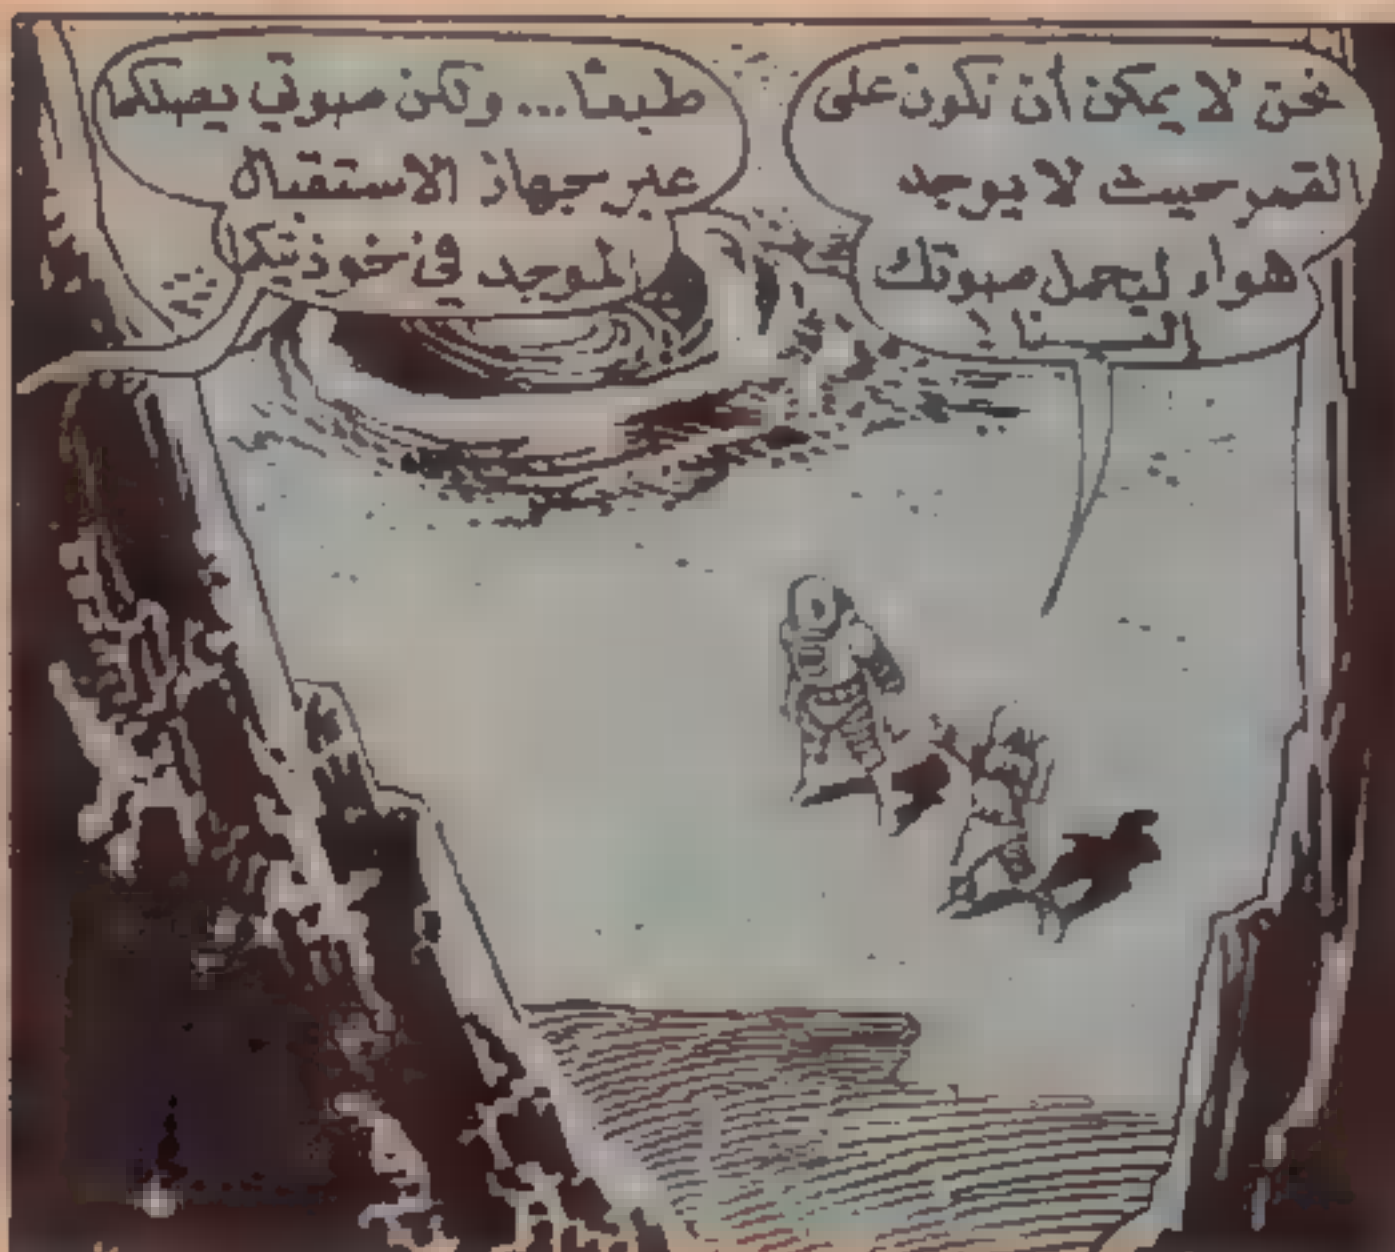 نحن لا يمكن أن نكون على
لقمر حيث لا يوجد
هواء ليحمل صوتك
إلينا !
طبعاً... ولكن صوتي يصلكما
عبر جهاز الاستقبال
الموجد في خوذتيكما